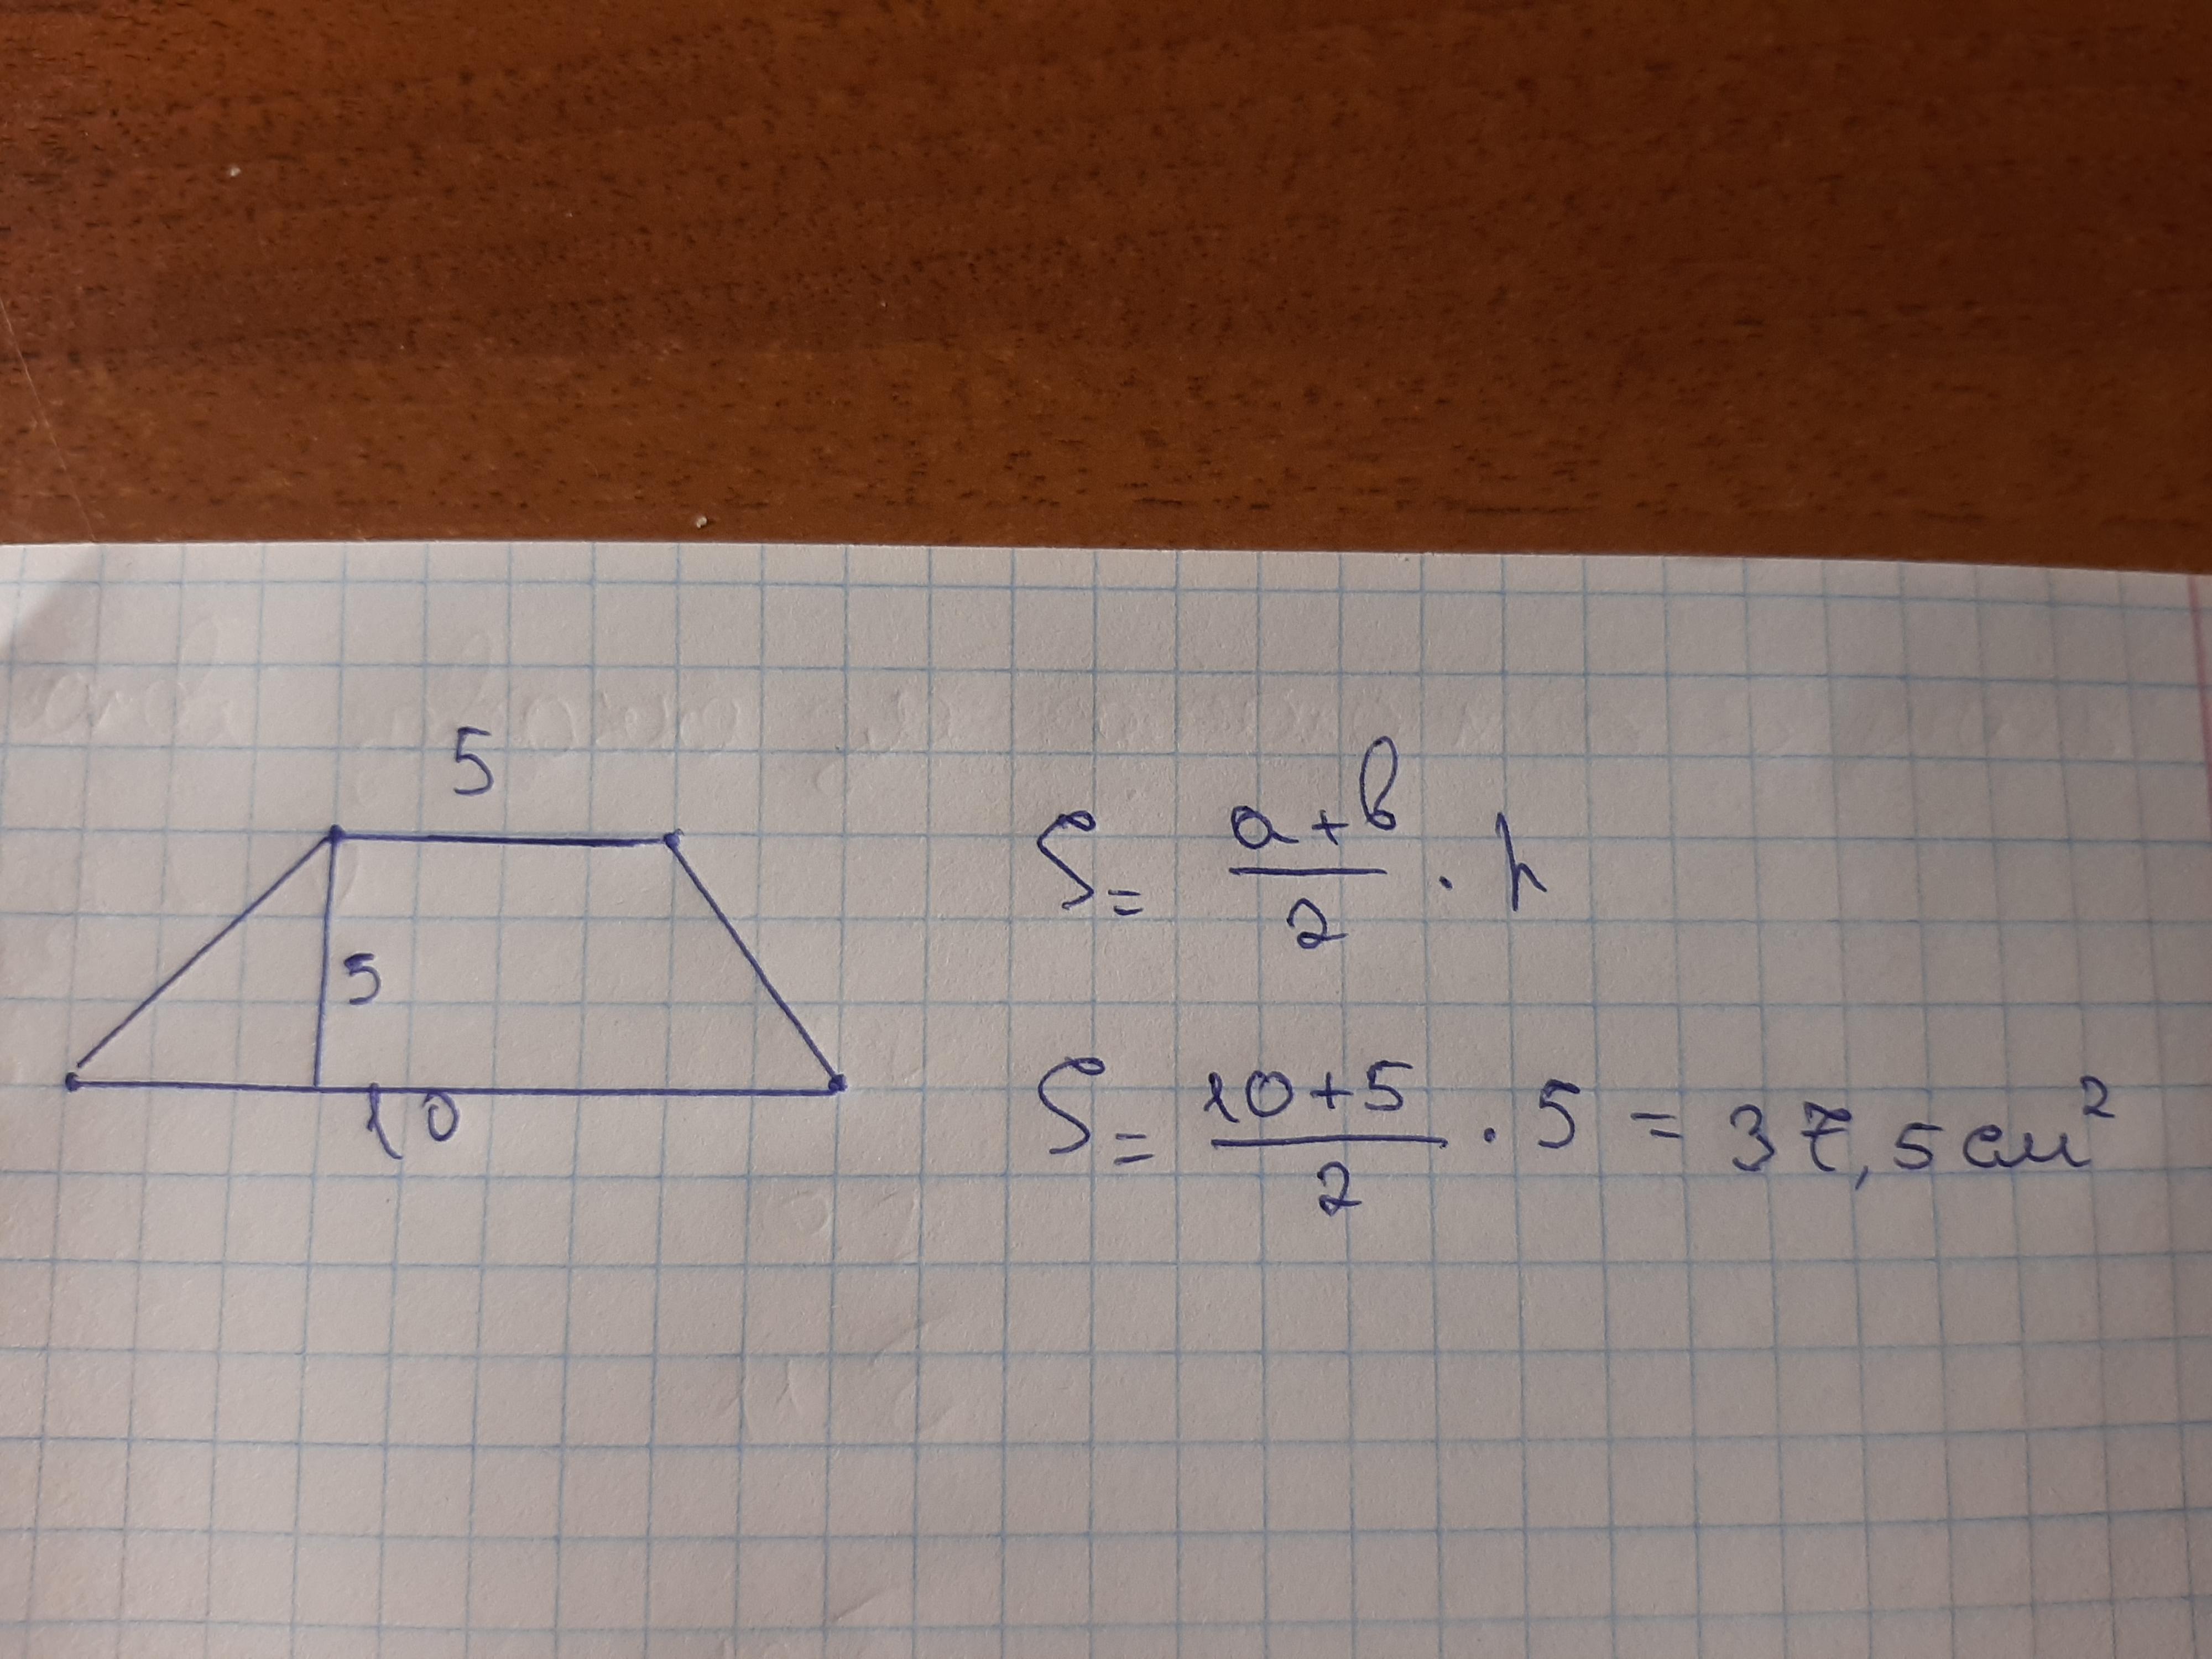 5
5
10
S = a+b/2 · h
S = 10+5/2 · 5 = 37,5 см²